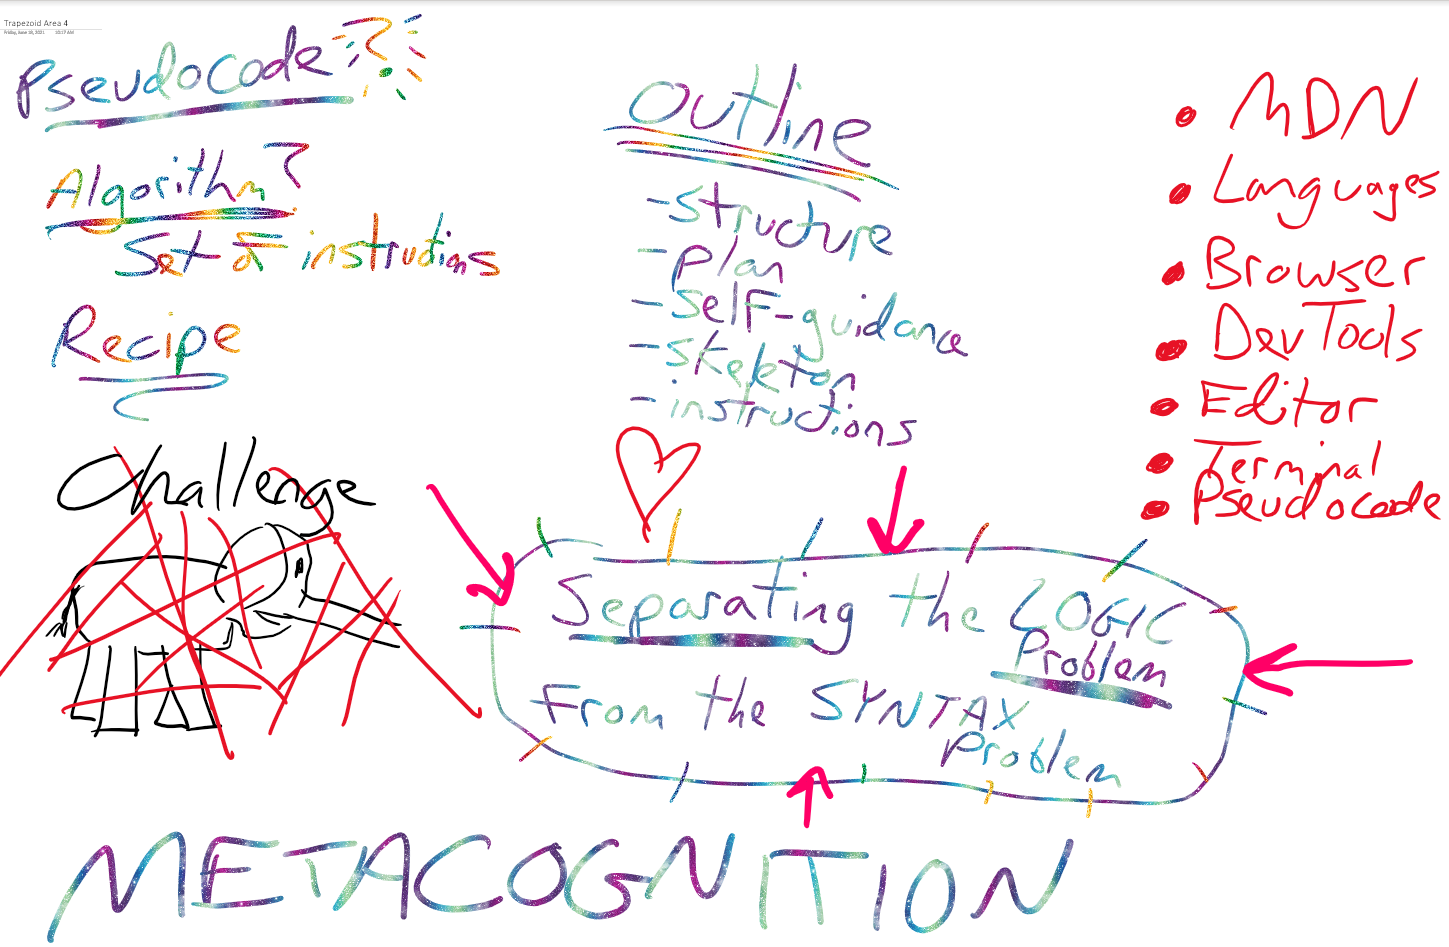 Trapezoid Area 4
Friday, June 18, 2021 10:17 AM
Pseudocode?
Algorithm?
Set of instructions
Recipe
Challenge
Outline
- Structure
- Plan
- Self-guidance
- Skeleton
- instructions
• MDN
• Languages
• Browser
• DevTools
• Editor
• Terminal
• Pseudocode
Separating the LOGIC
Problem
From the SYNTAX
Problem
METACOGNITION